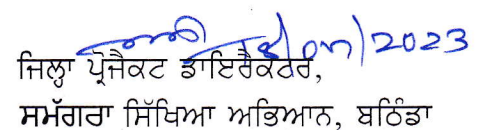 2023
ਜਿਲ੍ਹਾ ਪ੍ਰੋਜੈਕਟ ਡਾਇਰੈਕਟਰ,
ਸਮੱਗਰਾ ਸਿੱਖਿਆ ਅਭਿਆਨ, ਬਠਿੰਡਾ